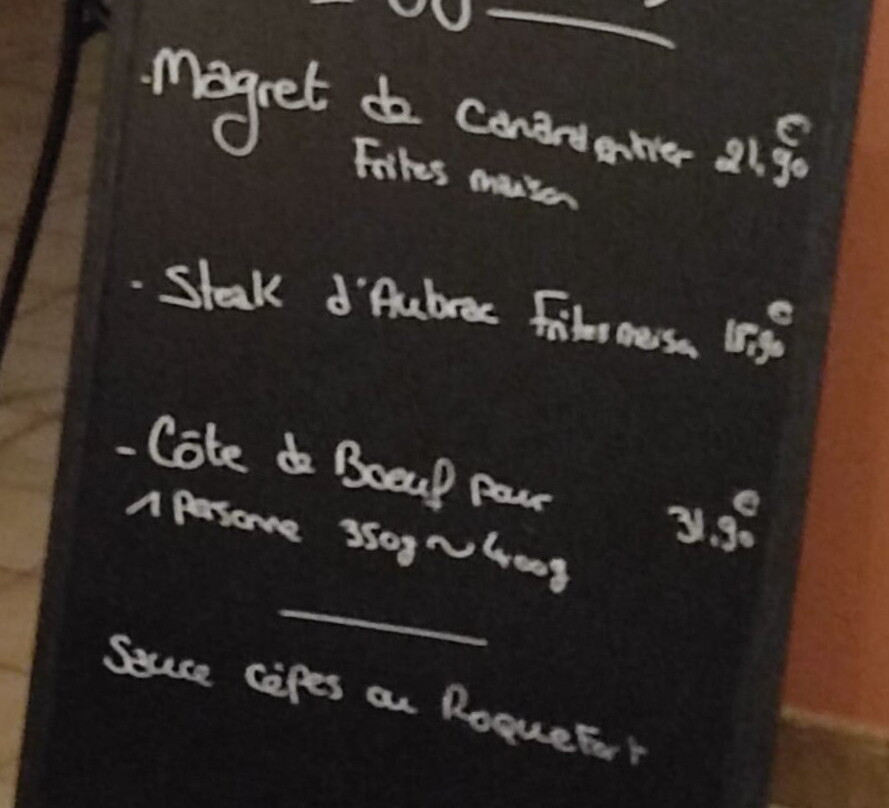 - Magret de Canard entier 21,90€
Frites maison
- Steak d'Aubrac Frites maison 15,90€
- Côte de Boeuf pour
1 Personne 350g ~ 400g 31,90€
Sauce Cêpes ou Roquefort